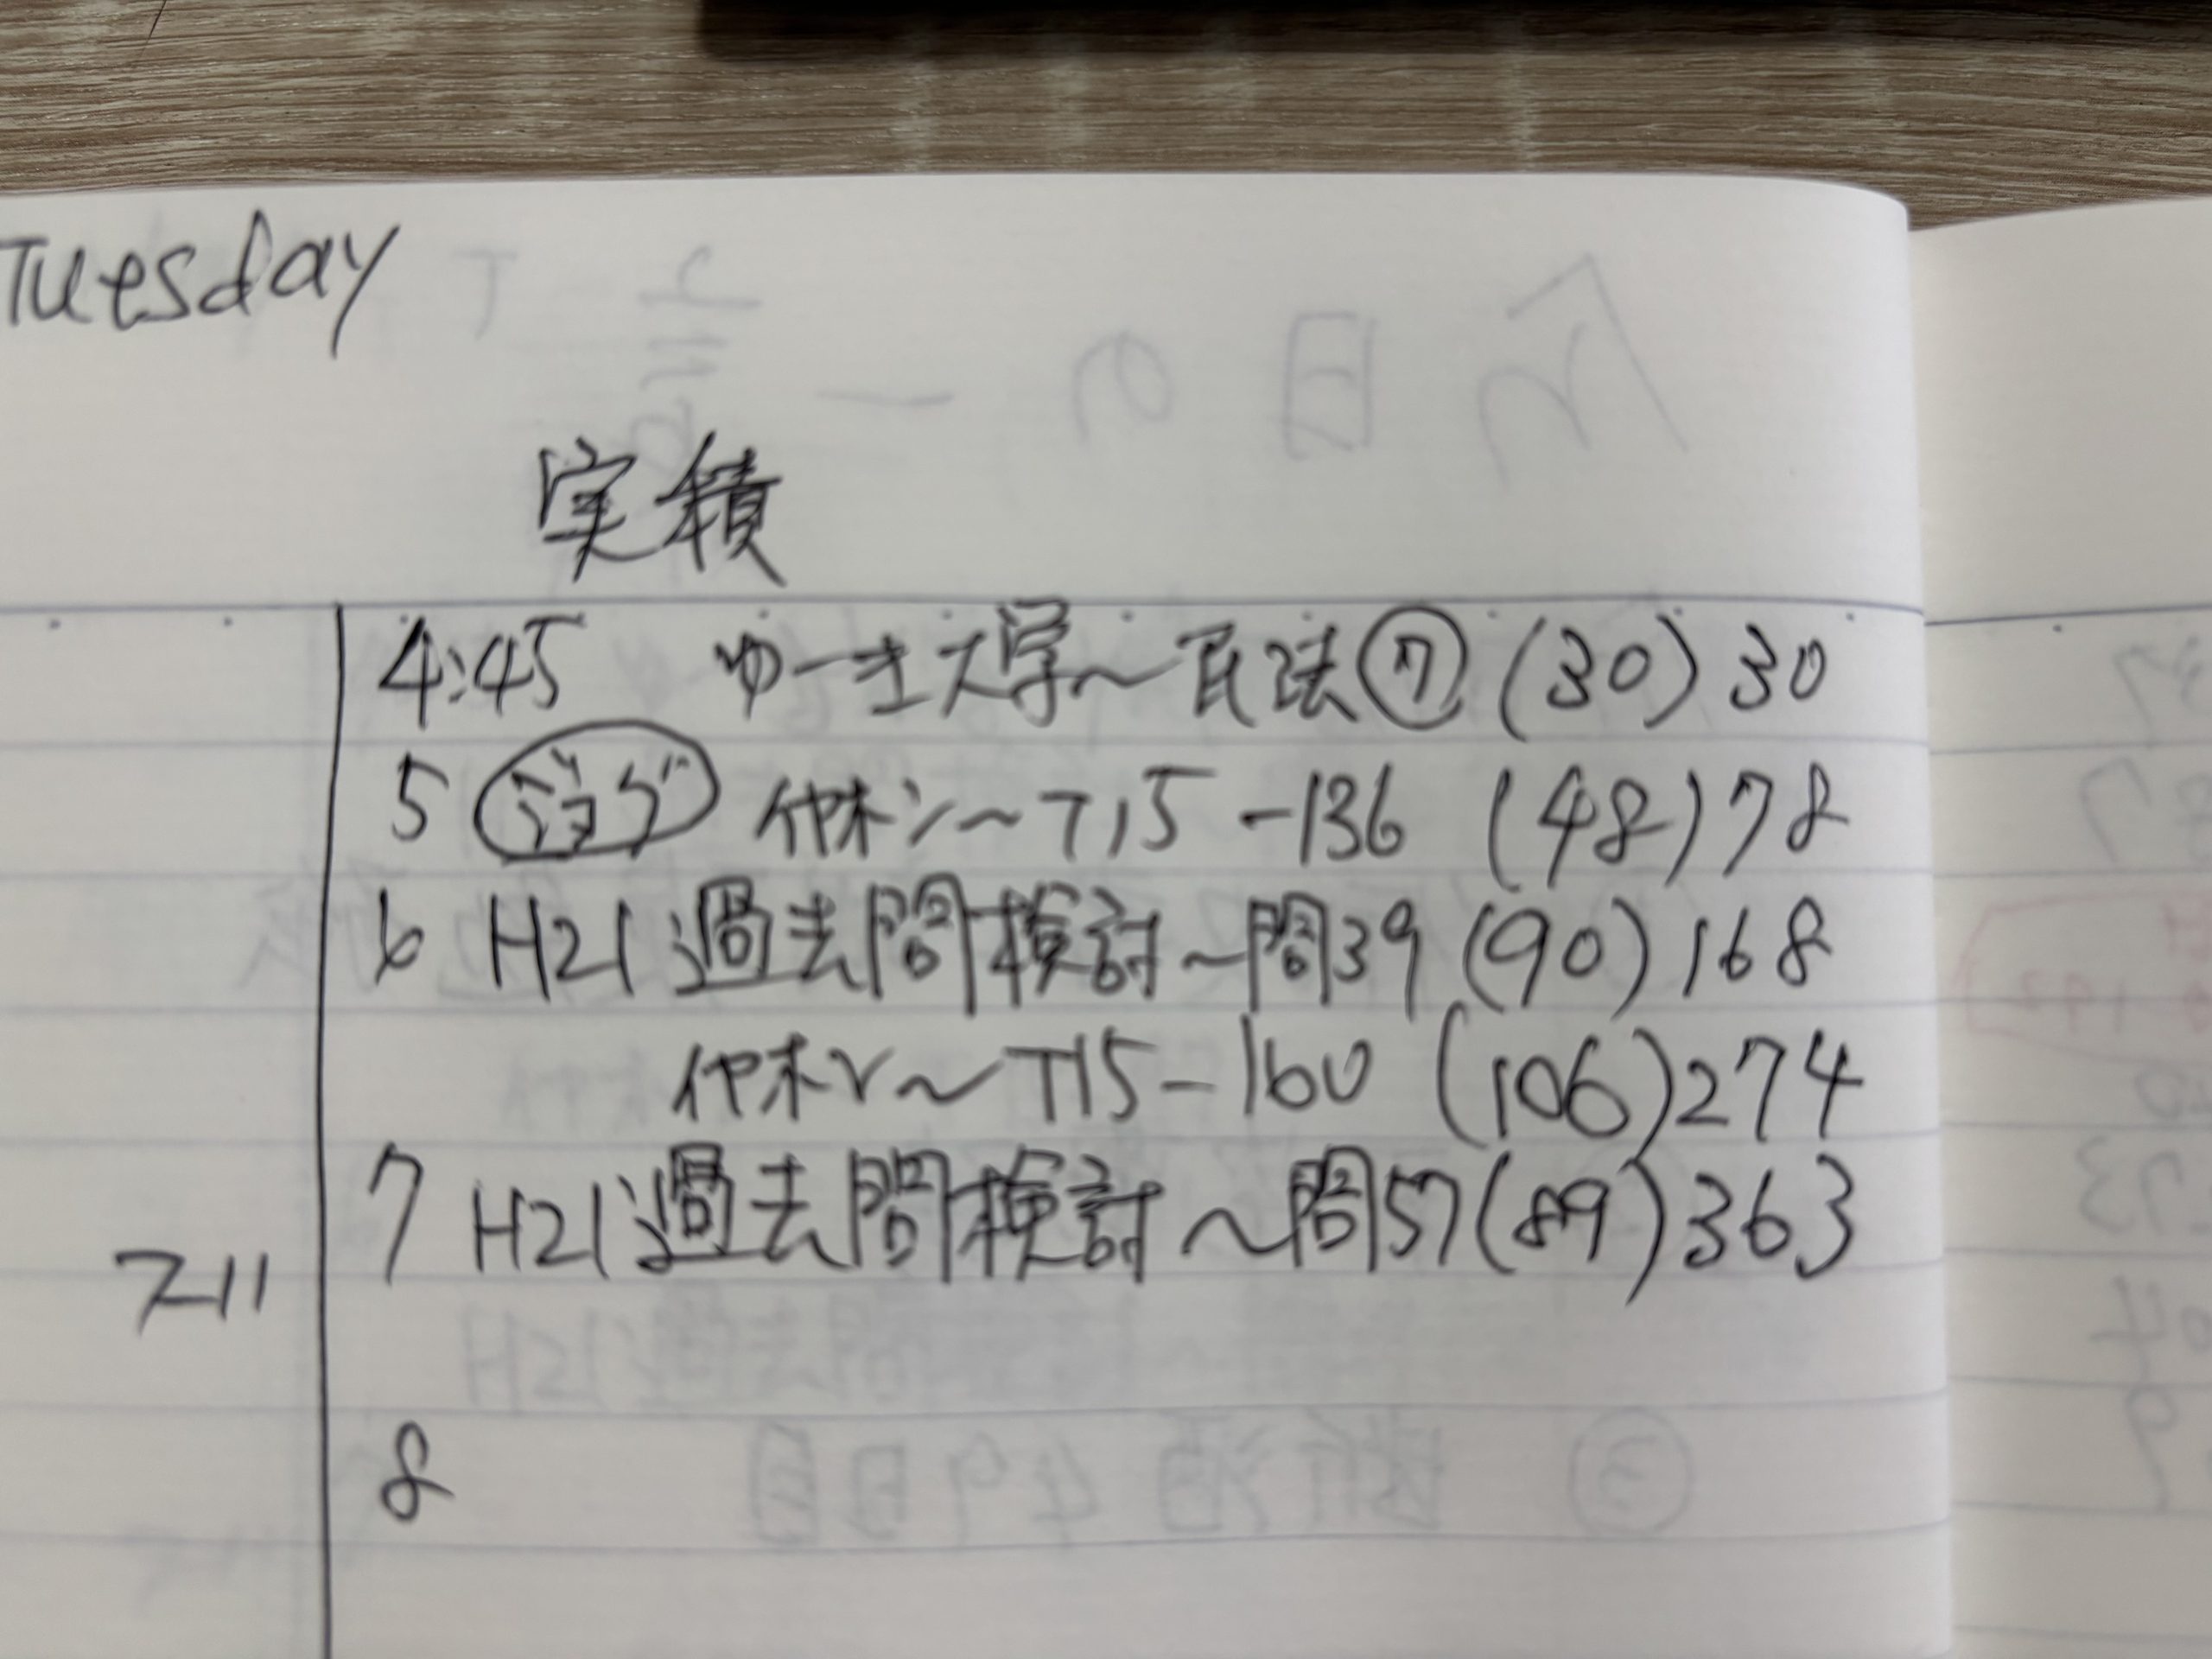 Tuesday
実績
4:45 ゆーき大学〜民法⑦ (30) 30
5 ジョグ イヤホン〜T15-136 (48) 78
6 H21過去問検討〜問39 (90) 168
イヤホン〜T15-160 (106) 274
7 H21過去問検討〜問57 (89) 363
8